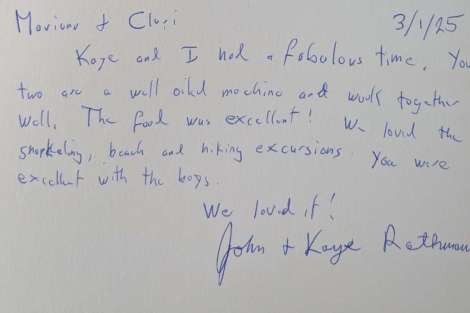 Mariano & Cluri 3/1/25
Kaye and I had a fabulous time. You
two are a well oiled machine and work together
well. The food was excellent! We loved the
snorkeling, beach and hiking excursions. You were
excellent with the boys.
We loved it!
John & Kaye Rathman